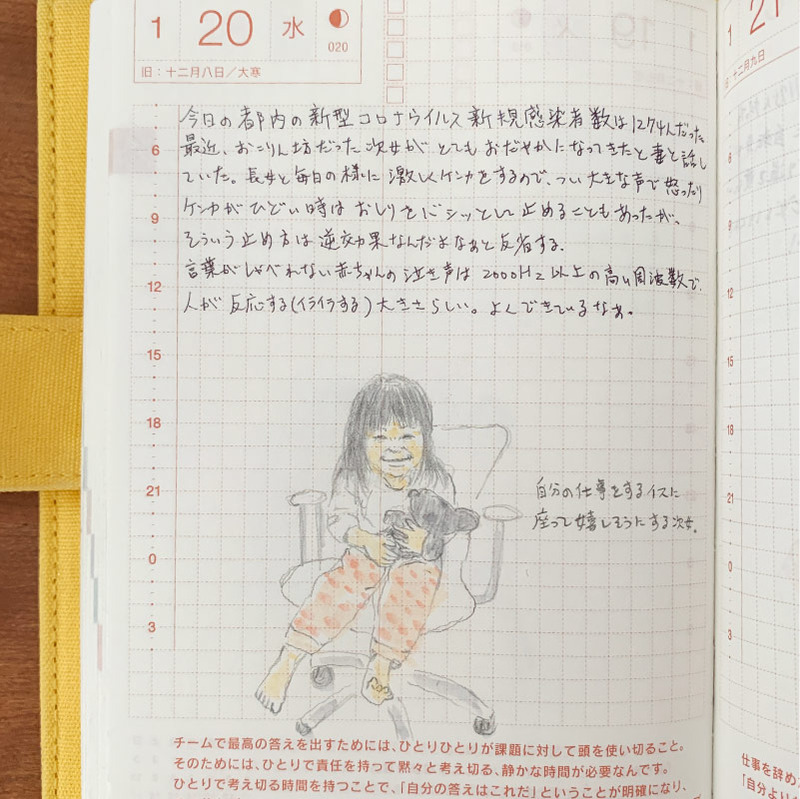 1 20 水
020
旧：十二月八日／大寒
今日の都内の新型コロナウイルス新規感染者数は1274人だった
最近、おこりん坊だった次女がとてもおだやかになってきたと妻と話し
ていた。長女と毎日の様に激しくケンカをするので、つい大きな声で怒ったり
ケンカがひどい時はおしりをバシッとして止めることもあったが、
そういう止め方は逆効果なんだよなぁと反省する。
言葉がしゃべれない赤ちゃんの泣き声は2000Hz以上の高い周波数で、
人が反応する(イライラする)大きさらしい。よくできているなぁ。
6
9
12
15
18
21
0
3
自分の仕事をするイスに
座って嬉しそうにする次女。
チームで最高の答えを出すためには、ひとりひとりが課題に対して頭を使い切ること。
そのためには、ひとりで責任を持って黙々と考え切る、静かな時間が必要なんです。
ひとりで考え切る時間を持つことで、「自分の答えはこれだ」ということが明確になり、
1 21
十二月九日
6
9
12
15
18
21
0
3
仕事を辞め
「自分より